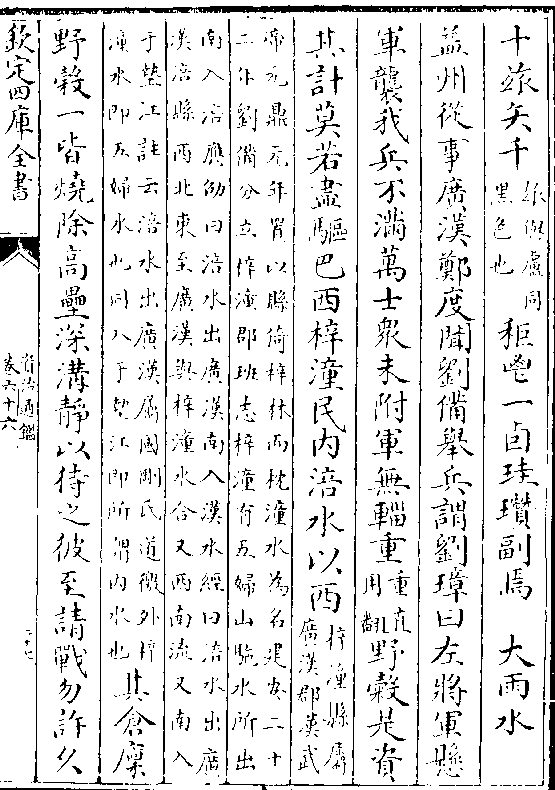 十玈矢千玈與盧同黑色也秬鬯一卣珪瓚副焉　大雨水
益州從事廣漢鄭度聞劉備舉兵謂劉璋曰左將軍懸
軍襲我兵不滿萬士衆未附軍無輜重重直用翻野穀是資
其計莫若盡驅巴西梓潼民内涪水以西梓潼縣屬廣漢郡漢武
帝元鼎元年置以縣倚梓林而枕潼水為名建安二十
二年劉備分立梓潼郡班志梓潼有五婦山馳水所出
南入涪應劭曰涪水出廣漢南入漢水經曰涪水出廣
漢涪縣西北東至廣漢與梓潼水合又西南流又南入
于墊江註云涪水出廣漢屬國剛氏道徼外梓
潼水即五婦水也同入于墊江即所謂内水也其倉廩
野穀一皆燒除高壘深溝靜以待之彼至請戰勿許久
欽定四庫全書
資治通鑑
卷六十六
二十七